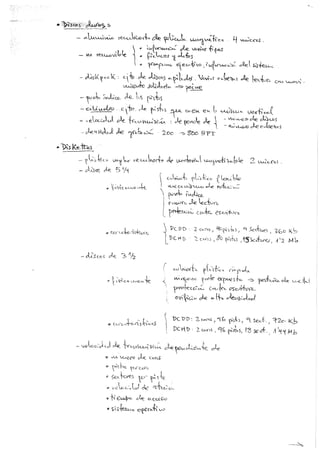 • Discos duros =
- aluminio recubierto de película magnética 4 micras.
- no removible
• información de varios tipos
• ficheros y datos
• programas ejecutivos, información del sistema.
- diskpack: cjto de discos apilados. Varios cabezas de lectura
- punto índice de las pistas
- cilindro: cjto. de pistas que en la misma vertical
- velocidad de transmisión: depende de
- número de discos
- número de cabezas
- densidad de grabación 200 → 800 BPI
• Diskettes
- plástico recubierto de material magnetizable 2 micras.
- disco de 5 1/4
• físicamente
cubierta plástica flexible
punto índice
ranura de lectura
protección contra escritura
• características
DCDD: 2 caras, pistas, 9 sectores, 360 Kb
DCHD: 2 caras, 80 pistas, 15 sectores, 1'2 Mb
- discos de 3 1/2
• físicamente
cubierta plástica rígida
protección contra escritura
orificio de alta densidad
• características
DCDD: 2 caras, pists, 9 sect., 720 Kb
DCHD: 2 caras, 96 pistas, 18 sect., 1'44 Mb
- velocidad de transmisión dependiente de
• número de caras
• pistas por cara
• sectores por pista
• velocidad de
• tiempo de acceso
• sistema operativo